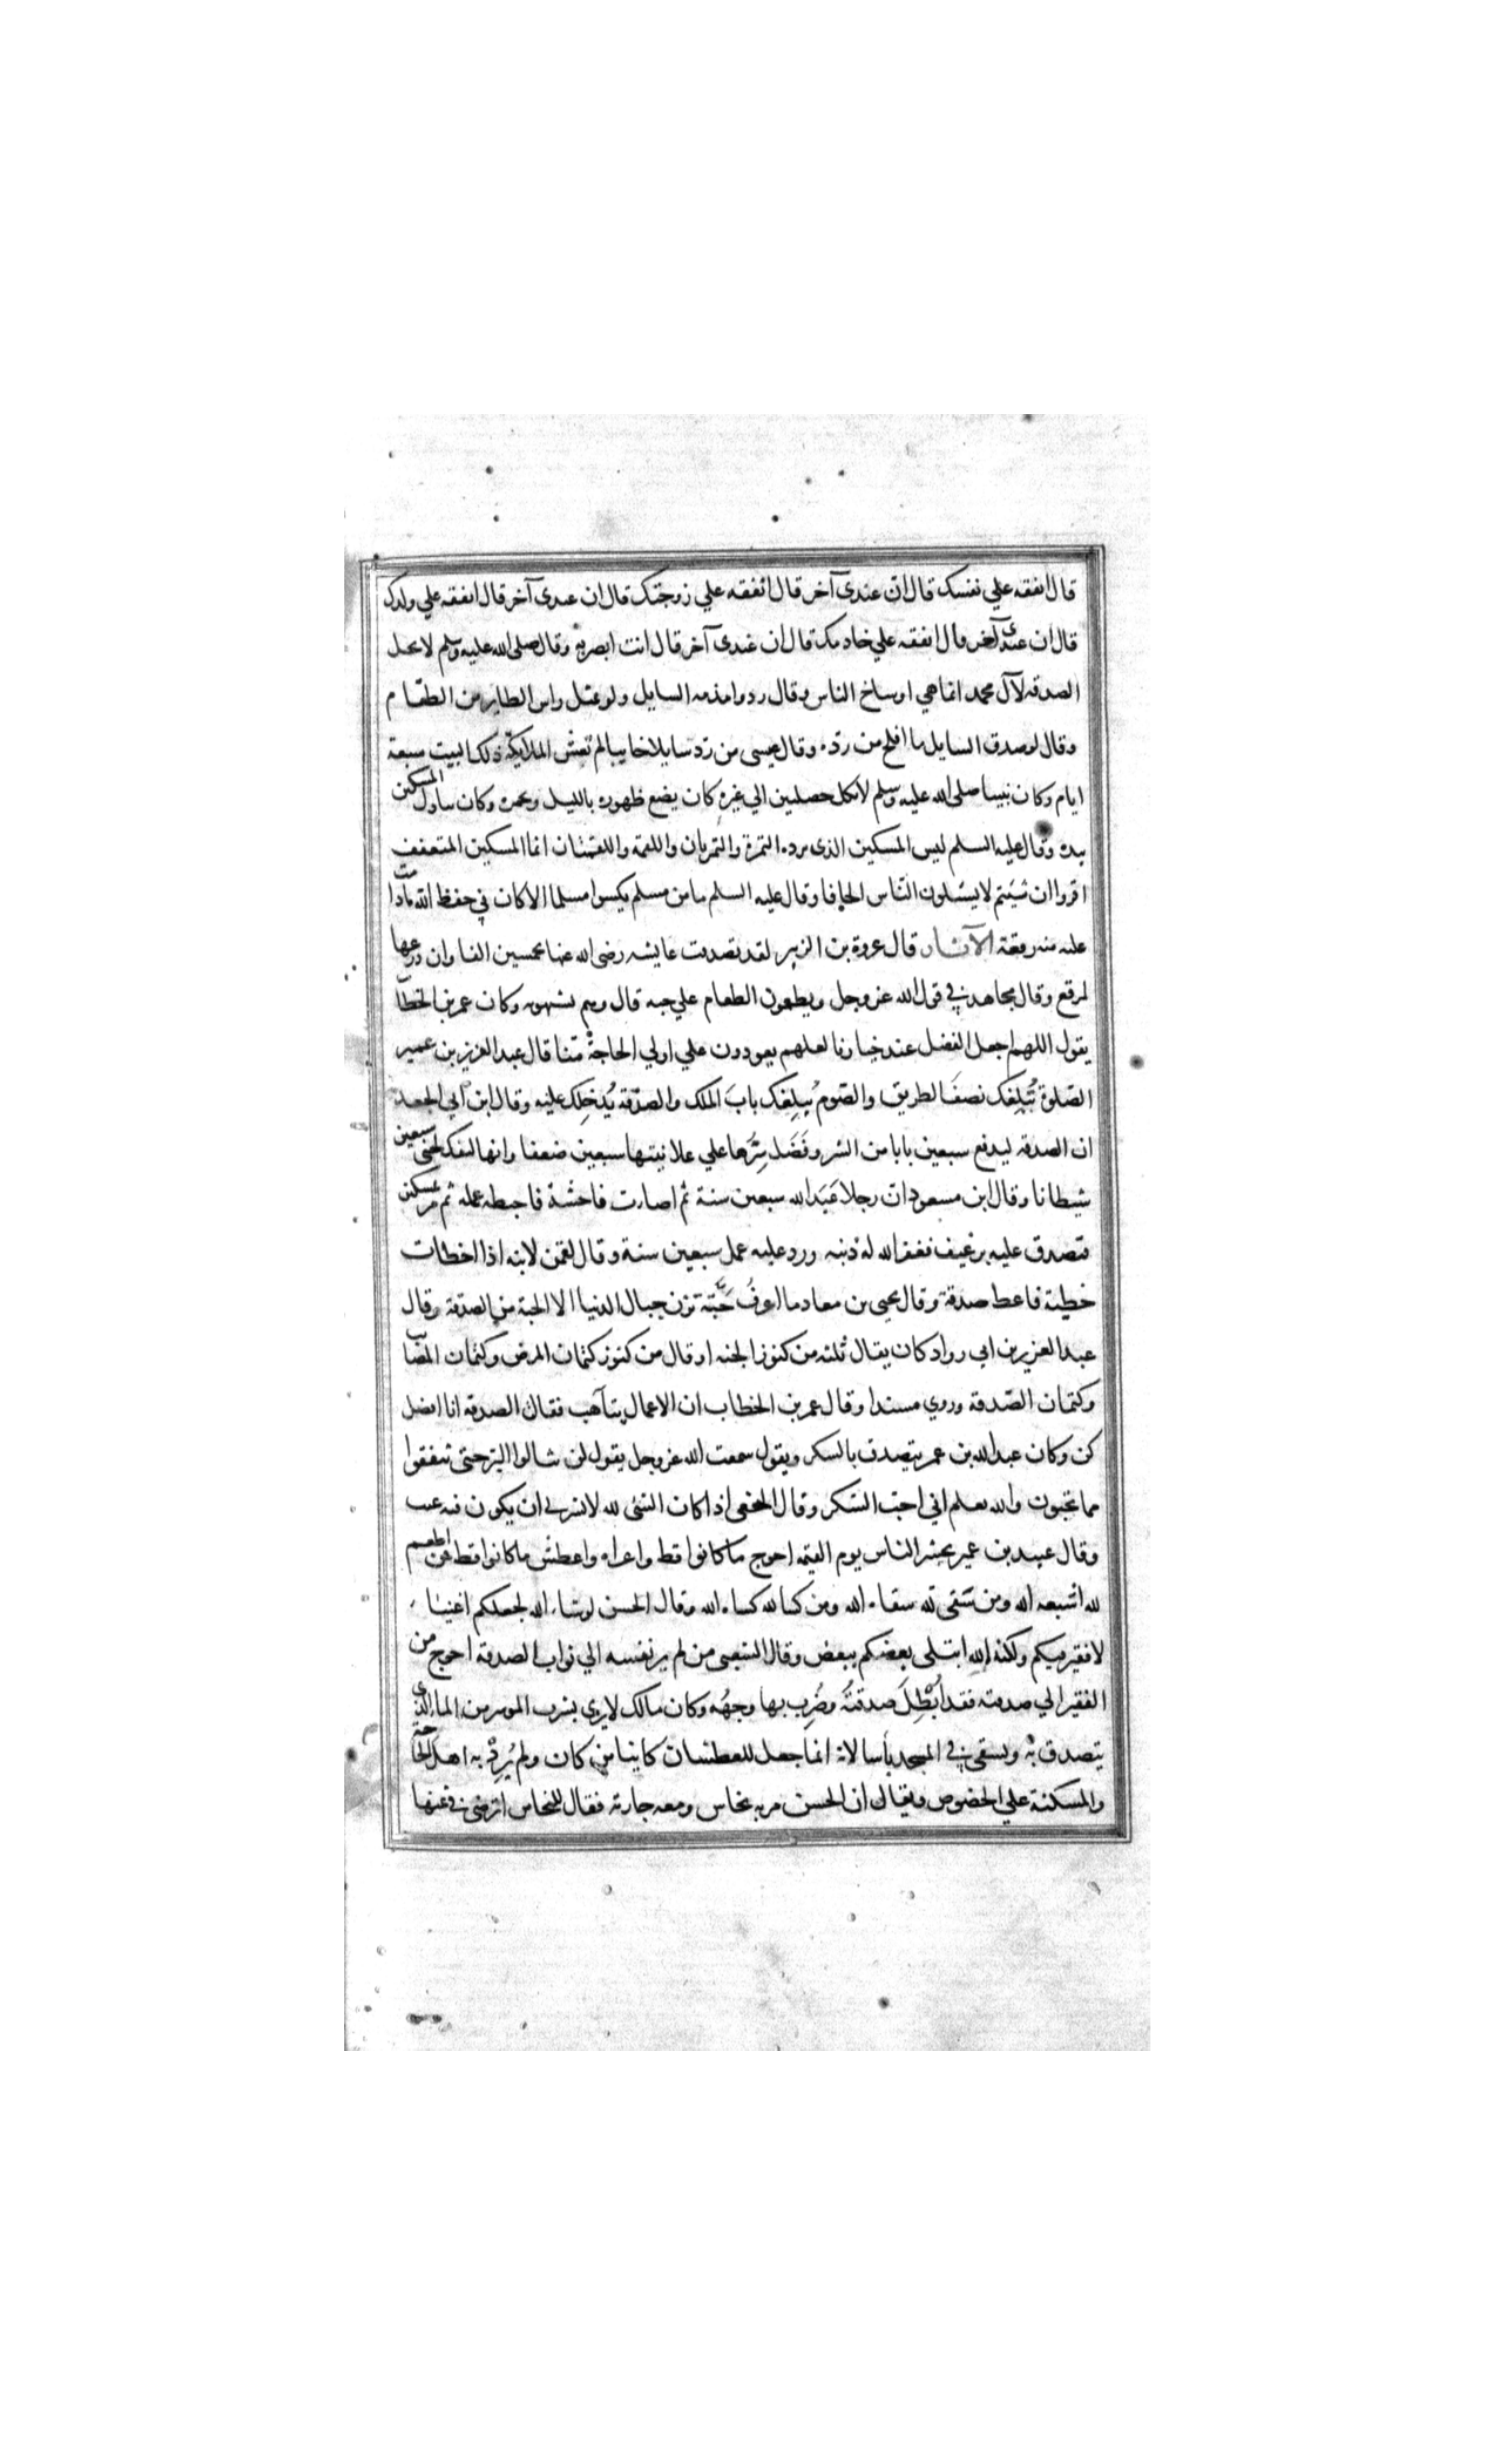 قال انفقه علي نفسك قال ان عندى آخر قال انفقه علي زوجتك قال ان عندى آخر قال انفقه علي ولدك
قال ان عندى آخر قال انفقه علي خادمك قال ان عندى آخر قال انت ابصر به وقال صلى الله عليه وسلم لا يحل
الصدقه لآل محمد انما هي اوساخ الناس وقال ردوا مذمه السايل ولو بمثل راس الطاير من الطعام
وقال لو صدق السايل ما افلح من رده وقال عيسى من رد سايلا خايبا لم تغش الملايكة ذلك البيت سبعة
ايام وكان نبينا صلى الله عليه وسلم لا يكل خصلتين الي غيره كان يضع طهوره بالليل ويخمره وكان يناول المسكين
بيده وقال عليه السلم ليس المسكين الذى يرده التمرة والتمرتان واللقمة واللقمتان انما المسكين المتعفف
اقروا ان شيتم لا يسئلون الناس الحافا وقال عليه السلم ما من مسلم يكسوا مسلما الا كان في حفظ الله مادامت
عليه منه رقعة الآثار قال عروة بن الزبير لقد تصدقت عايشه رضى الله عنها بخمسين الفا وان درعها
لمرقع وقال مجاهد في قول الله عز وجل ويطعمون الطعام علي حبه قال وهم يشتهونه وكان عمر بن الخطاب
يقول اللهم اجعل الفضل عند خيارنا لعلهم يعودون علي اولي الحاجة منا قال عبد العزيز بن عمير
الصلوة تُبلِغك نصفَ الطريق والصوم يُبلِغك بابَ الملك والصدقة يُدخِلك عليه وقال ابن ابي الجعد
ان الصدقه ليدفع سبعين بابا من الشر وفَضَل سِرُّها علي علانيتها سبعين ضعفا وانها لتفك لحيى سبعين
شيطانا وقال ابن مسعود ان رجلا عَبَد الله سبعين سنة ثم اصابت فاحشة فاحبطه عمله ثم مر بمسكين
فتصدق عليه برغيف فغفر الله له ذنبه ورد عليه عمل سبعين سنة وقال لقمن لابنه اذا اخطات
خطية فاعط صدقة وقال يحيى بن معاد ما اعرفُ حَبّة تزن جبال الدنيا الا الحبة من الصدقة وقال
عبد العزيز بن ابي رواد كان يقال ثلثه من كنوز الجنه او قال من كنوز كتمان المرض وكتمان المصاب
وكتمان الصدقة وروي مسندا وقال عمر بن الخطاب ان الاعمال يتاهب فقال الصدقه انا افضل
كن وكان عبد الله بن عمر يتصدق بالسكر ويقول سمعت الله عز وجل يقول لن تنالوا البر حتى تنفقوا
مما تحبون والله يعلم اني احب السكر وقال النخعى اذا كان الشئ لله لا يسرني ان يكون فيه عيب
وقال عبيد بن عمير يحشر الناس يوم القيمة احوج ما كانوا قط واعراه واعطش ما كانوا قط فمن اطعم
لله اشبعه الله ومن سقى لله سقاه الله ومن كسا لله كساه الله وقال الحسن لو شاء الله لجعلكم اغنياء
لا فقير فيكم ولكنه الله ابتلى بعضكم ببعض وقال الشعبى من لم ير نفسه الي ثواب الصدقه احوج من
الفقير الي صدقته فقد اَبْطَلَ صدقتُه وضُرِب بها وجهُه وكان مالك لا يري بشرب الموسر من الماء الذى
يتصدق به ويسقى في المسجد بأسا لانه انما جعل للعطشان كاينا من كان ولم يُرِدْ به اهل الحاجة
والمسكنة علي الخصوص ويقال ان الحسن مر به نخاس ومعه جاريه فقال للنخاس اترضى في ثمنها